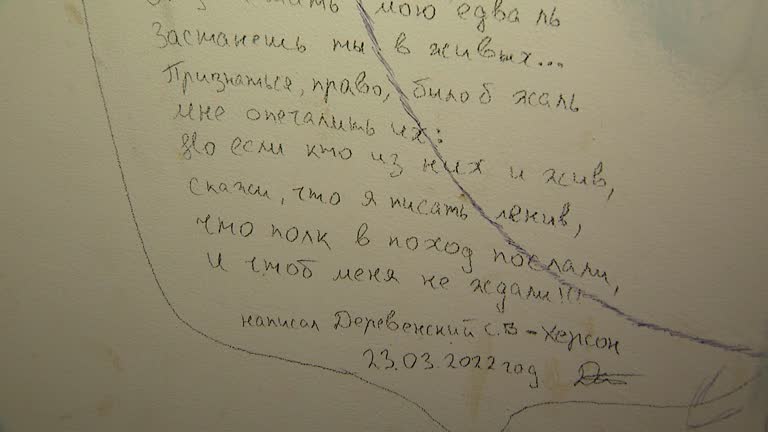 мою едва ль
Застанешь ты в живых...
Признаться, право, было б жаль
мне опечалить их:
Но если кто из них и жив,
скажи, что я писать ленив,
что полк в поход послали,
И чтоб меня не ждали!!!
написал Деревенский С.В - Херсон
23.03.2022 год